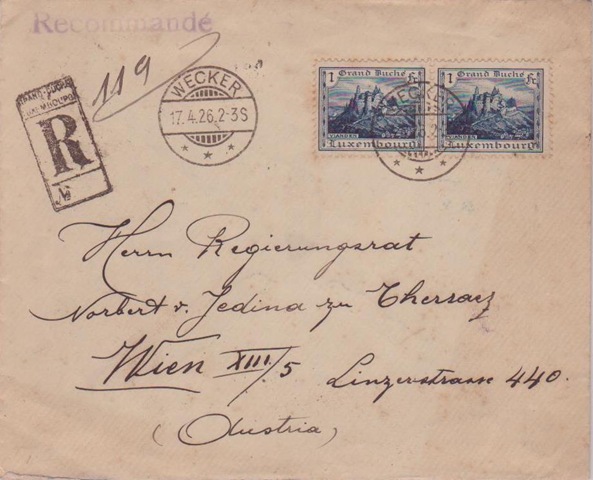 Recommandé
119
GRAND-DUCHÉ
R
No
WECKER
17.4.26.2-3S
1 Grand Duché Fr.
VIANDEN
Luxembourg
1 Grand Duché Fr.
Luxembourg
WECKER
Herrn Regierungsrat
Norbert v. Jedina zu
Wien XIII/5 Linzerstrasse 440.
(Austria)